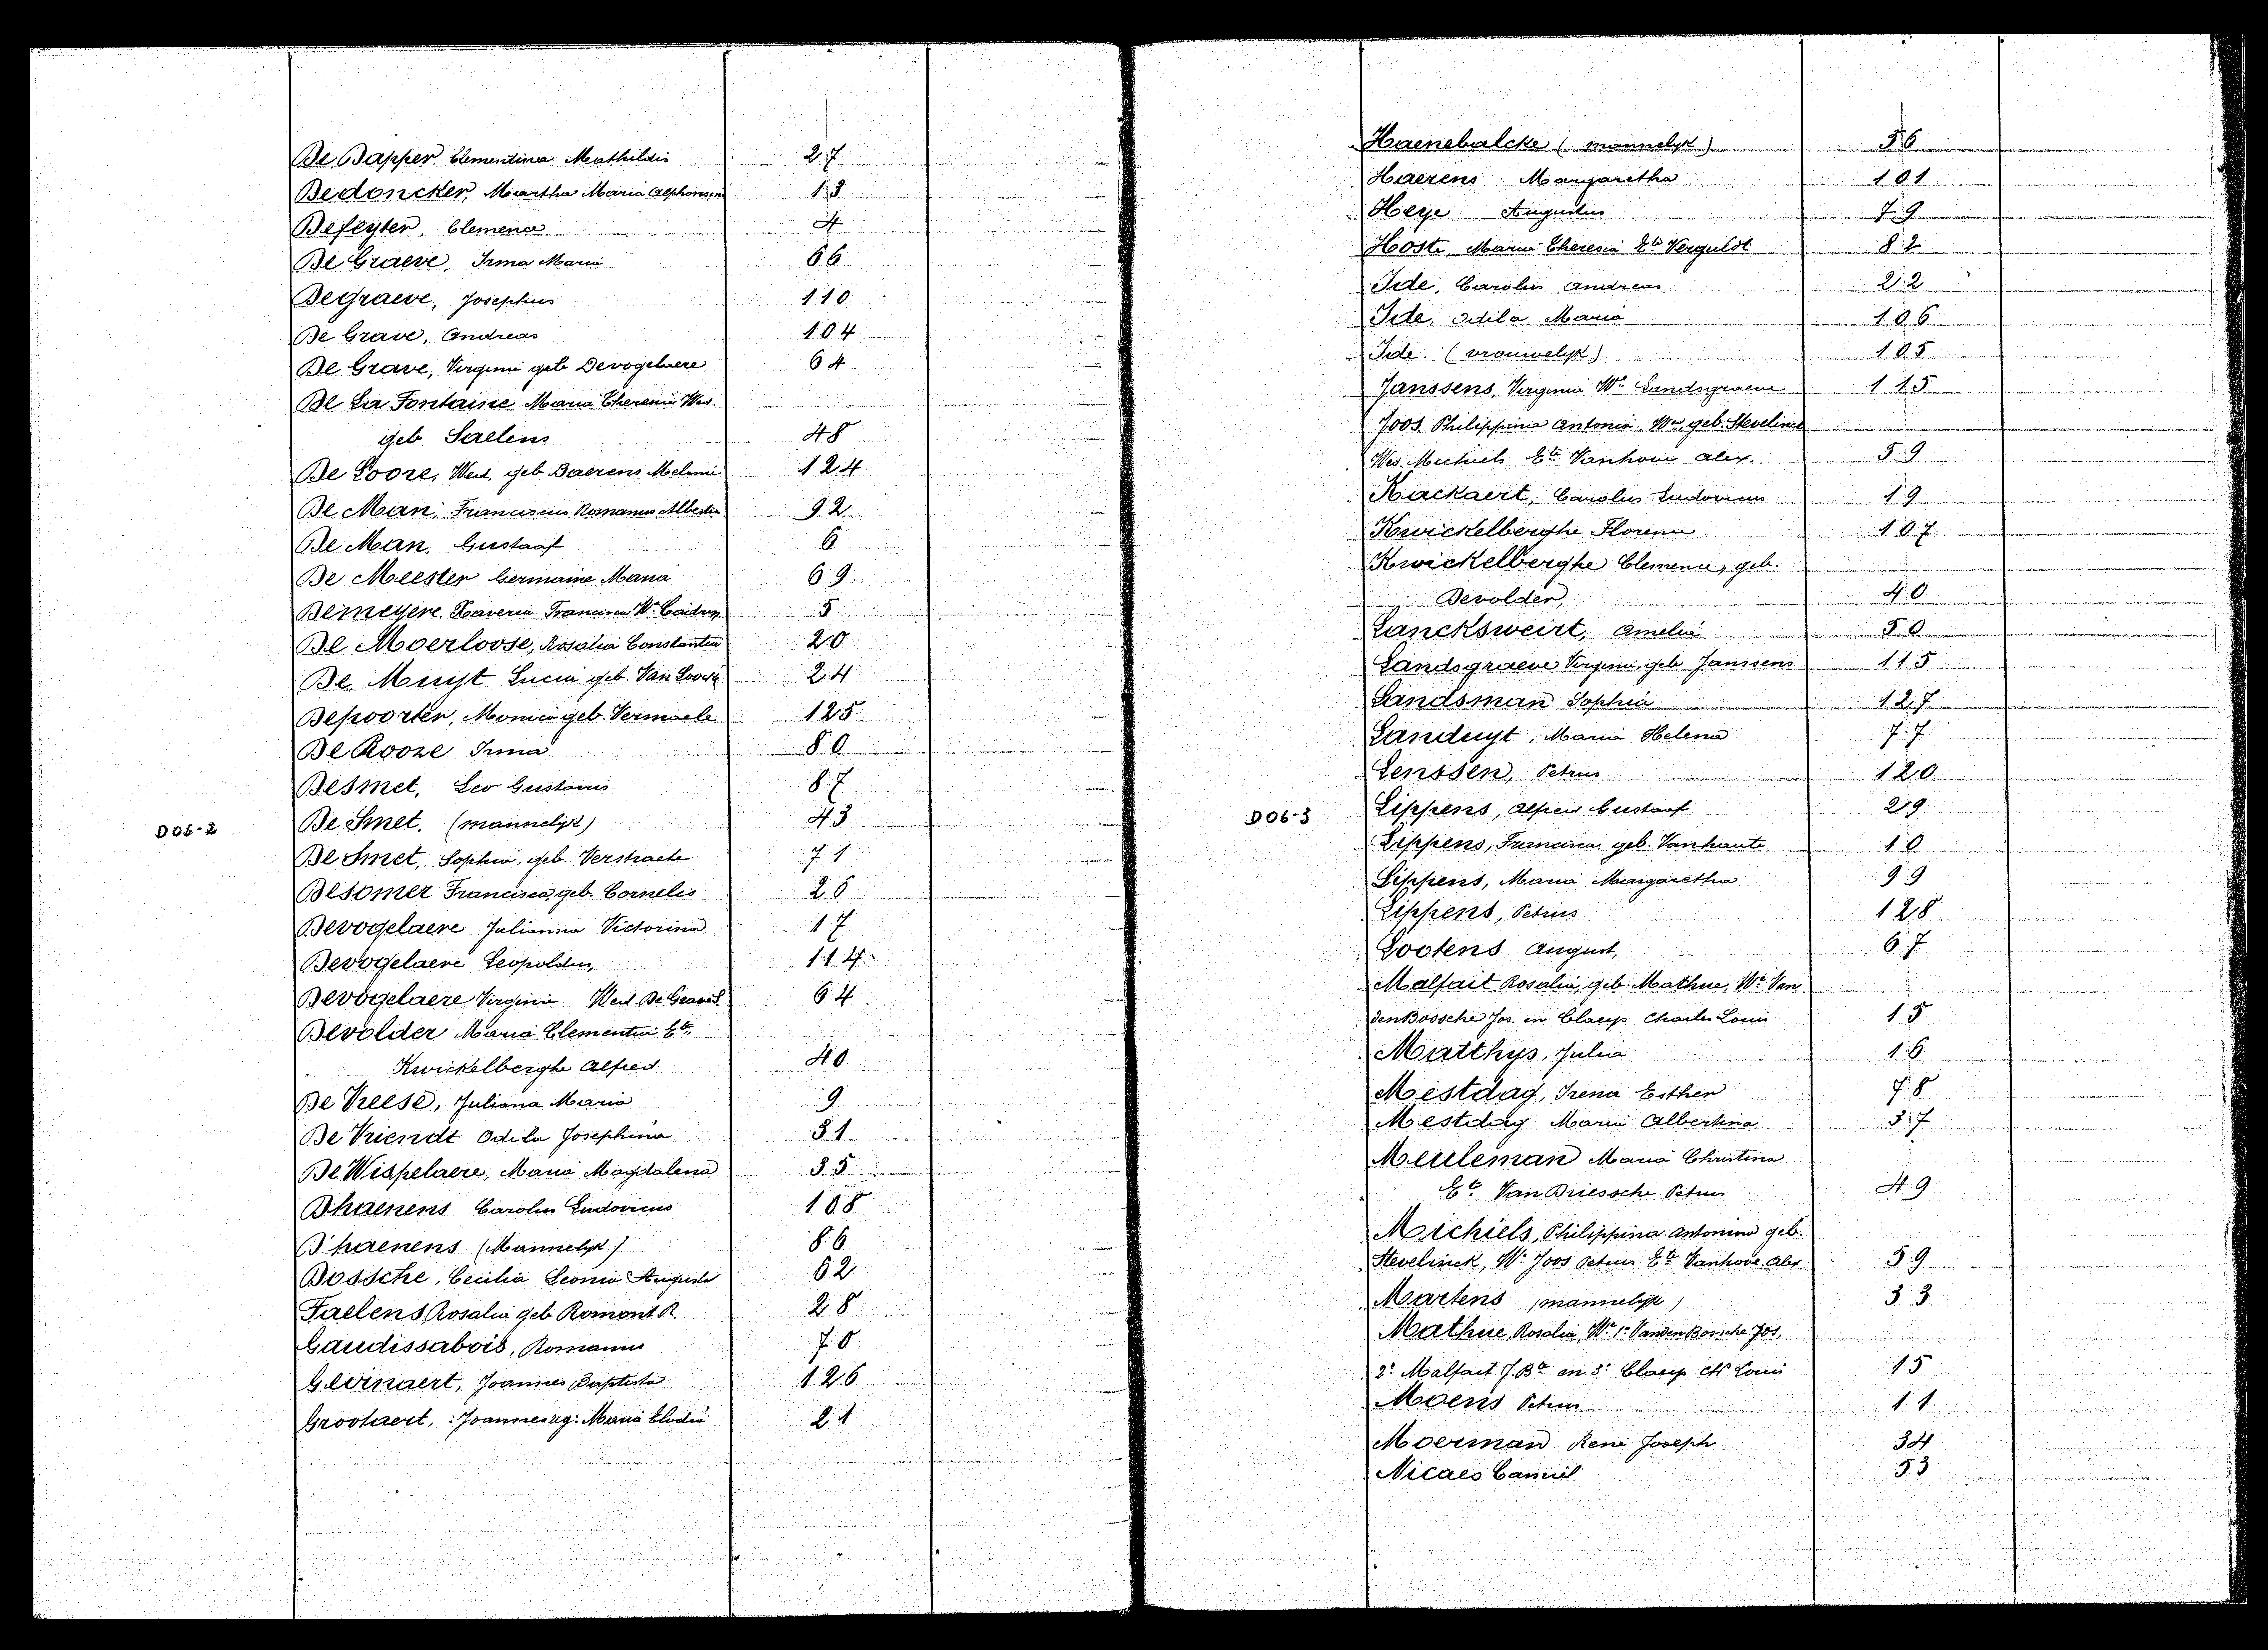 De Dapper Clementina Mathildis 27
Dedoncker, Martha Maria Alphonsina 13
Defeyter, Clemence 4
De Graeve, Irma Maria 66
Degraeve, Josephus 110
De Grave, Andreas 104
De Grave, Virginie geb Devogelaere 64
De La Fontaine Maria Theresia Wed.
geb Saelens 48
De Loore, Wed. geb. Daerens Melanie 124
De Man, Franciscus Romanus Albertus 92
De Man, Gustaaf 6
De Meester Germaine Maria 69
Demeyere Xaveria Francisca We 5
De Moerloose, Rosalia Constantia 20
De Muyt Lucia geb. Van Loocke 24
Depoorter, Monica geb. Vermaele 125
De Rooze Irma 80
Desmet, Leo Gustavus 87
D06-2
De Smet, (mannelijk) 43
De Smet, Sophia, geb. Verstraete 71
Desomer Francisca, geb. Cornelis 26
Devogelaere Julianna Victorina 17
Devogelaere Leopoldus, 114
Devogelaere Virginie Wed. De Grave 64
Devolder Maria Clementia Ete
Kwickelberghe Alfred 40
De Vreese, Juliana Maria 9
De Vriendt Odila Josephina 31
De Wispelaere, Maria Magdalena 35
Dhaenens Carolus Ludovicus 108
D'haenens (Mannelijk) 86
Dossche, Cecilia Leonia Augusta 62
Faelens Rosalia geb Romont R. 28
Gaudissabois, Romanus 70
Gevinaert, Joannes Baptista 126
Grootaert, Maria Elodia 21
Haenebalcke (mannelijk) 56
Haerens Margaretha 101
Heye Augustus 79
Hoste, Maria Theresia Ete Verguldt 82
Ide, Carolus Andreas 22
Ide, Odila Maria 106
Ide. (vrouwelijk) 105
Janssens, Virginie We Landsgraeve 115
Joos Philippina Antonia, Wed, geb. Stevelinck
Wed. Michiels Ete Vanhove Alex. 59
Kackaert, Carolus Ludovicus 19
Kwickelberghe Florence 107
Kwickelberghe Clemence, geb.
Devolder, 40
Lancksweirt, Amelia 50
Landsgraeve Virginie, geb Janssens 115
Landsman Sophia 127
Landuyt, Maria Helena 77
Lenssen, Petrus 120
D06-3
Lippens, Alfred Gustaaf 29
Lippens, Francisca, geb. Vanhaute 10
Lippens, Maria Margaretha 99
Lippens, Petrus 128
Lootens August, 67
Malfait Rosalia, geb. Mathue, We Van
den Bossche Jos. en Claeys Charles Louis 15
Matthys, Julia 16
Mestdag, Irena Esther 78
Mestdag Maria Albertina 37
Meuleman Maria Christina
Ete Van Driessche Petrus 49
Michiels, Philippina Antonina geb.
Stevelinck, We Joos Petrus Ete Vanhove Alex 59
Martens (mannelijk) 33
Mathue, Rosalia, We 1e Vanden Bossche Jos,
2e Malfait J. Bte en 3e Claeys Ch Louis 15
Moens Petrus 11
Moerman René Joseph 34
Nicaes Camiel 53